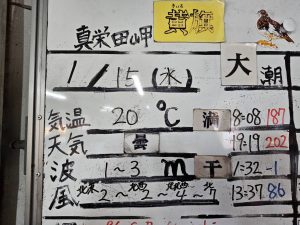 きいろ
黄旗
真栄田岬
1/15(水) 大潮
気温 20℃ 満 8:08 187
天気 曇 19:19 202
波 1～3m 干 1:32 -1
風 2～2～4～7 13:37 86